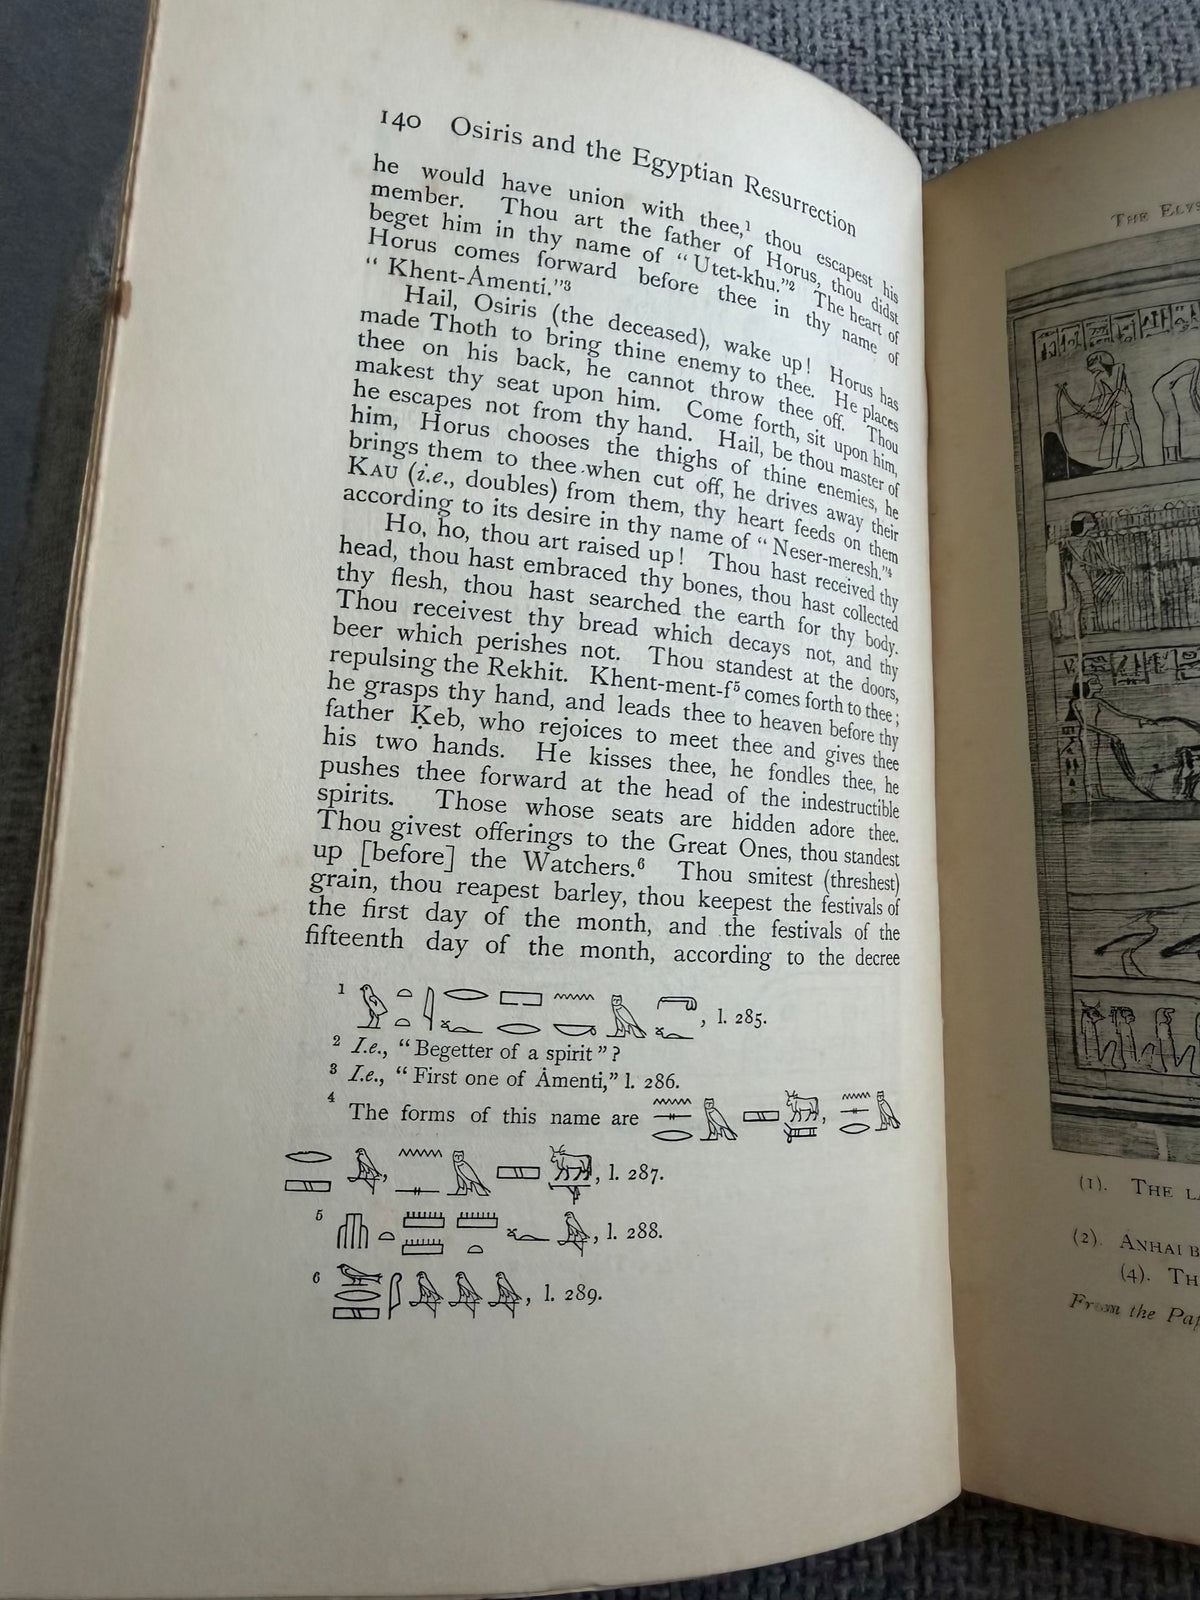 140 Osiris and the Egyptian Resurrection
he would have union with thee,¹ thou escapest his
member. Thou art the father of Horus, thou didst
beget him in thy name of “Utet-khu.”² The heart of
Horus comes forward before thee in thy name of
“Khent-Ȧmenti.”³
Hail, Osiris (the deceased), wake up! Horus has
made Thoth to bring thine enemy to thee. He places
thee on his back, he cannot throw thee off. Thou
makest thy seat upon him. Come forth, sit upon him,
he escapes not from thy hand. Hail, be thou master of
him, Horus chooses the thighs of thine enemies, he
brings them to thee when cut off, he drives away their
KAU (i.e., doubles) from them, thy heart feeds on them
according to its desire in thy name of “Neser-meresh.”⁴
Ho, ho, thou art raised up! Thou hast received thy
head, thou hast embraced thy bones, thou hast collected
thy flesh, thou hast searched the earth for thy body.
Thou receivest thy bread which decays not, and thy
beer which perishes not. Thou standest at the doors,
repulsing the Rekhit. Khent-ment-f⁵ comes forth to thee;
he grasps thy hand, and leads thee to heaven before thy
father Ḳeb, who rejoices to meet thee and gives thee
his two hands. He kisses thee, he fondles thee, he
pushes thee forward at the head of the indestructible
spirits. Those whose seats are hidden adore thee.
Thou givest offerings to the Great Ones, thou standest
up [before] the Watchers.⁶ Thou smitest (threshest)
grain, thou reapest barley, thou keepest the festivals of
the first day of the month, and the festivals of the
fifteenth day of the month, according to the decree
¹ , l. 285.
² I.e., “Begetter of a spirit”?
³ I.e., “First one of Ȧmenti,” l. 286.
⁴ The forms of this name are
, l. 287.
⁵ , l. 288.
⁶ , l. 289.
THE
(1). THE
(2). ANHAI
(4).
From the